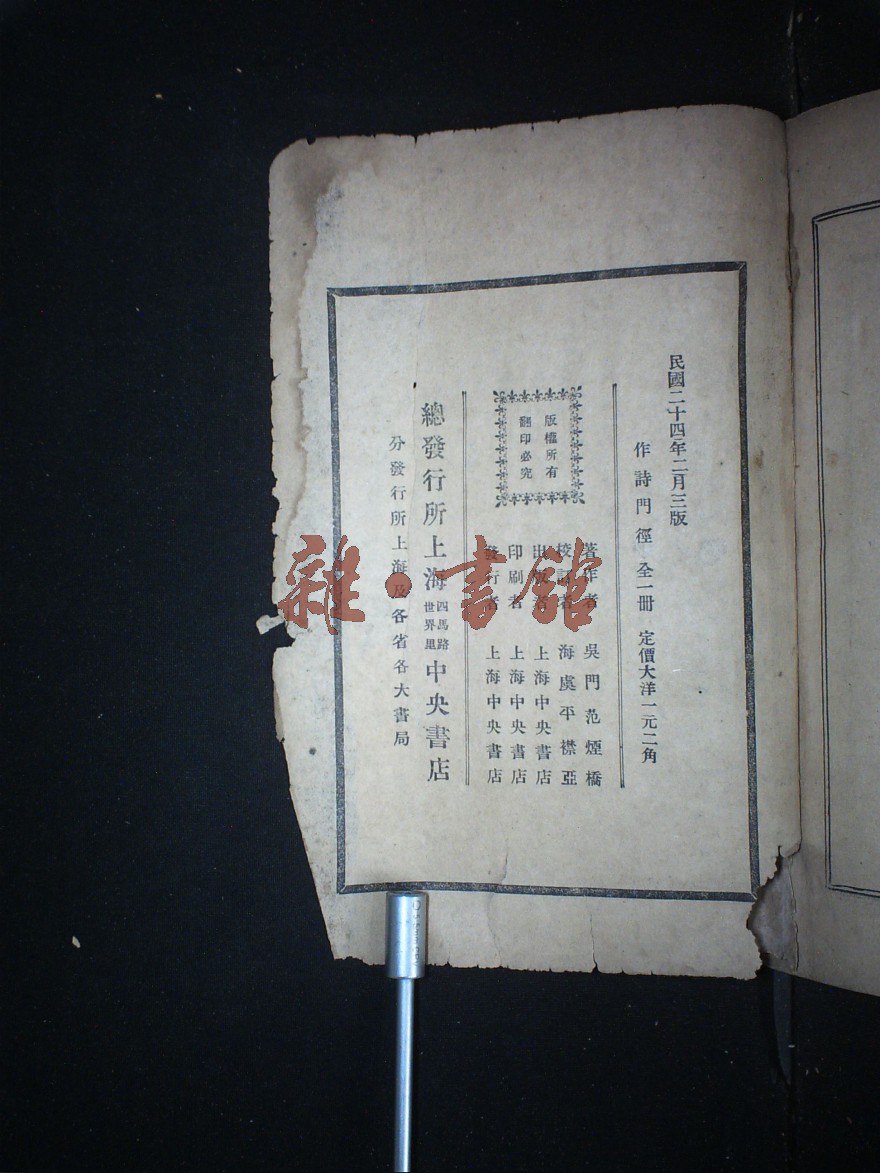 民國二十四年二月三版
作詩門徑 全一冊 定價大洋一元二角
著作者 吳門范煙橋
校訂者 海虞平襟亞
出版者 上海中央書店
印刷者 上海中央書店
發行者 上海中央書店
版權所有
翻印必究
總發行所上海四馬路世界里中央書店
分發行所上海及各省各大書局
雜·書館